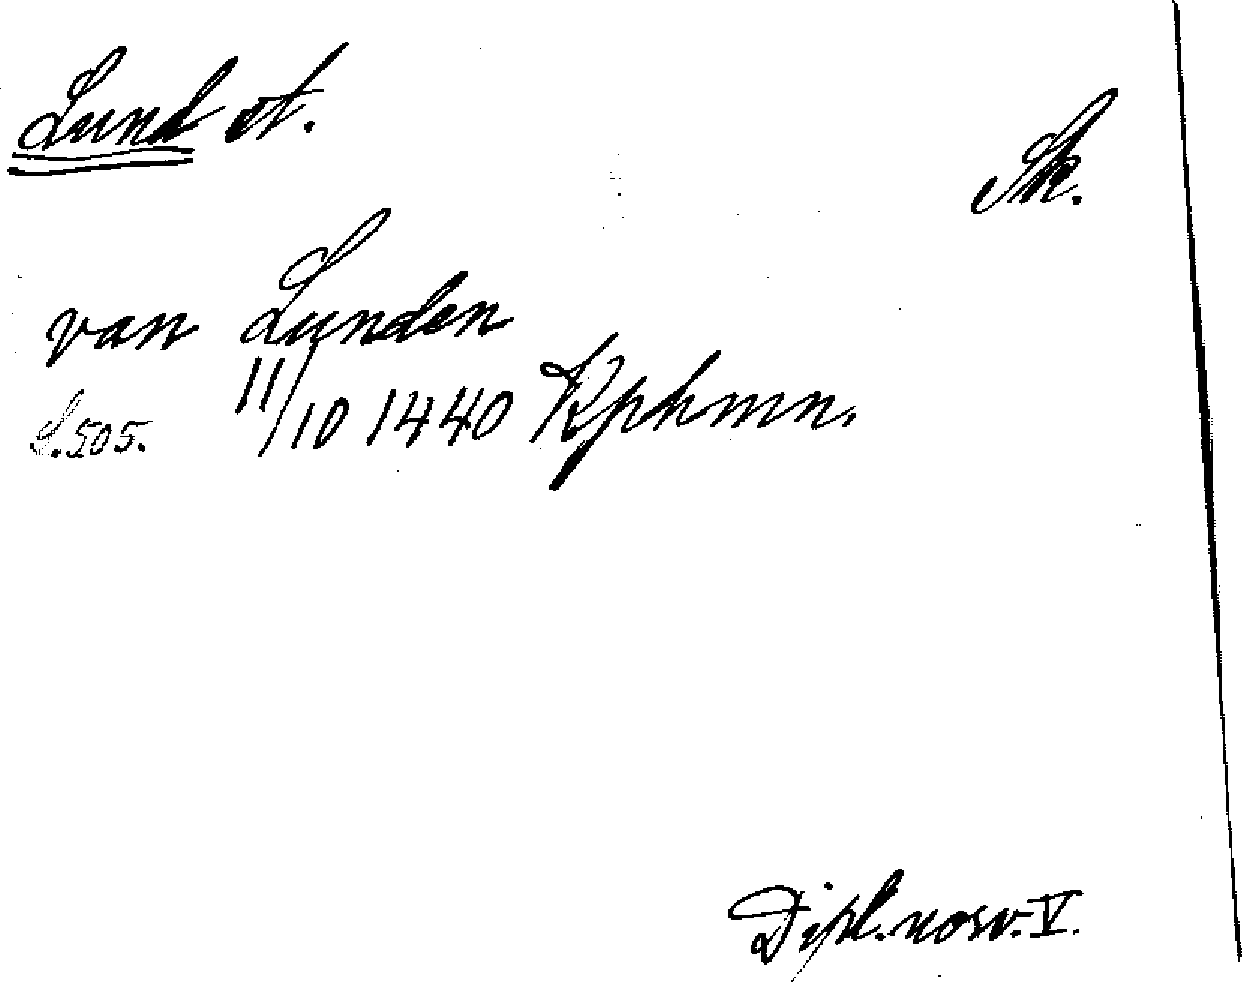 Lund st.
Sk.
van Lunden
S.505. 11/10 1440 Kphmn.
Dipl. norv. V.